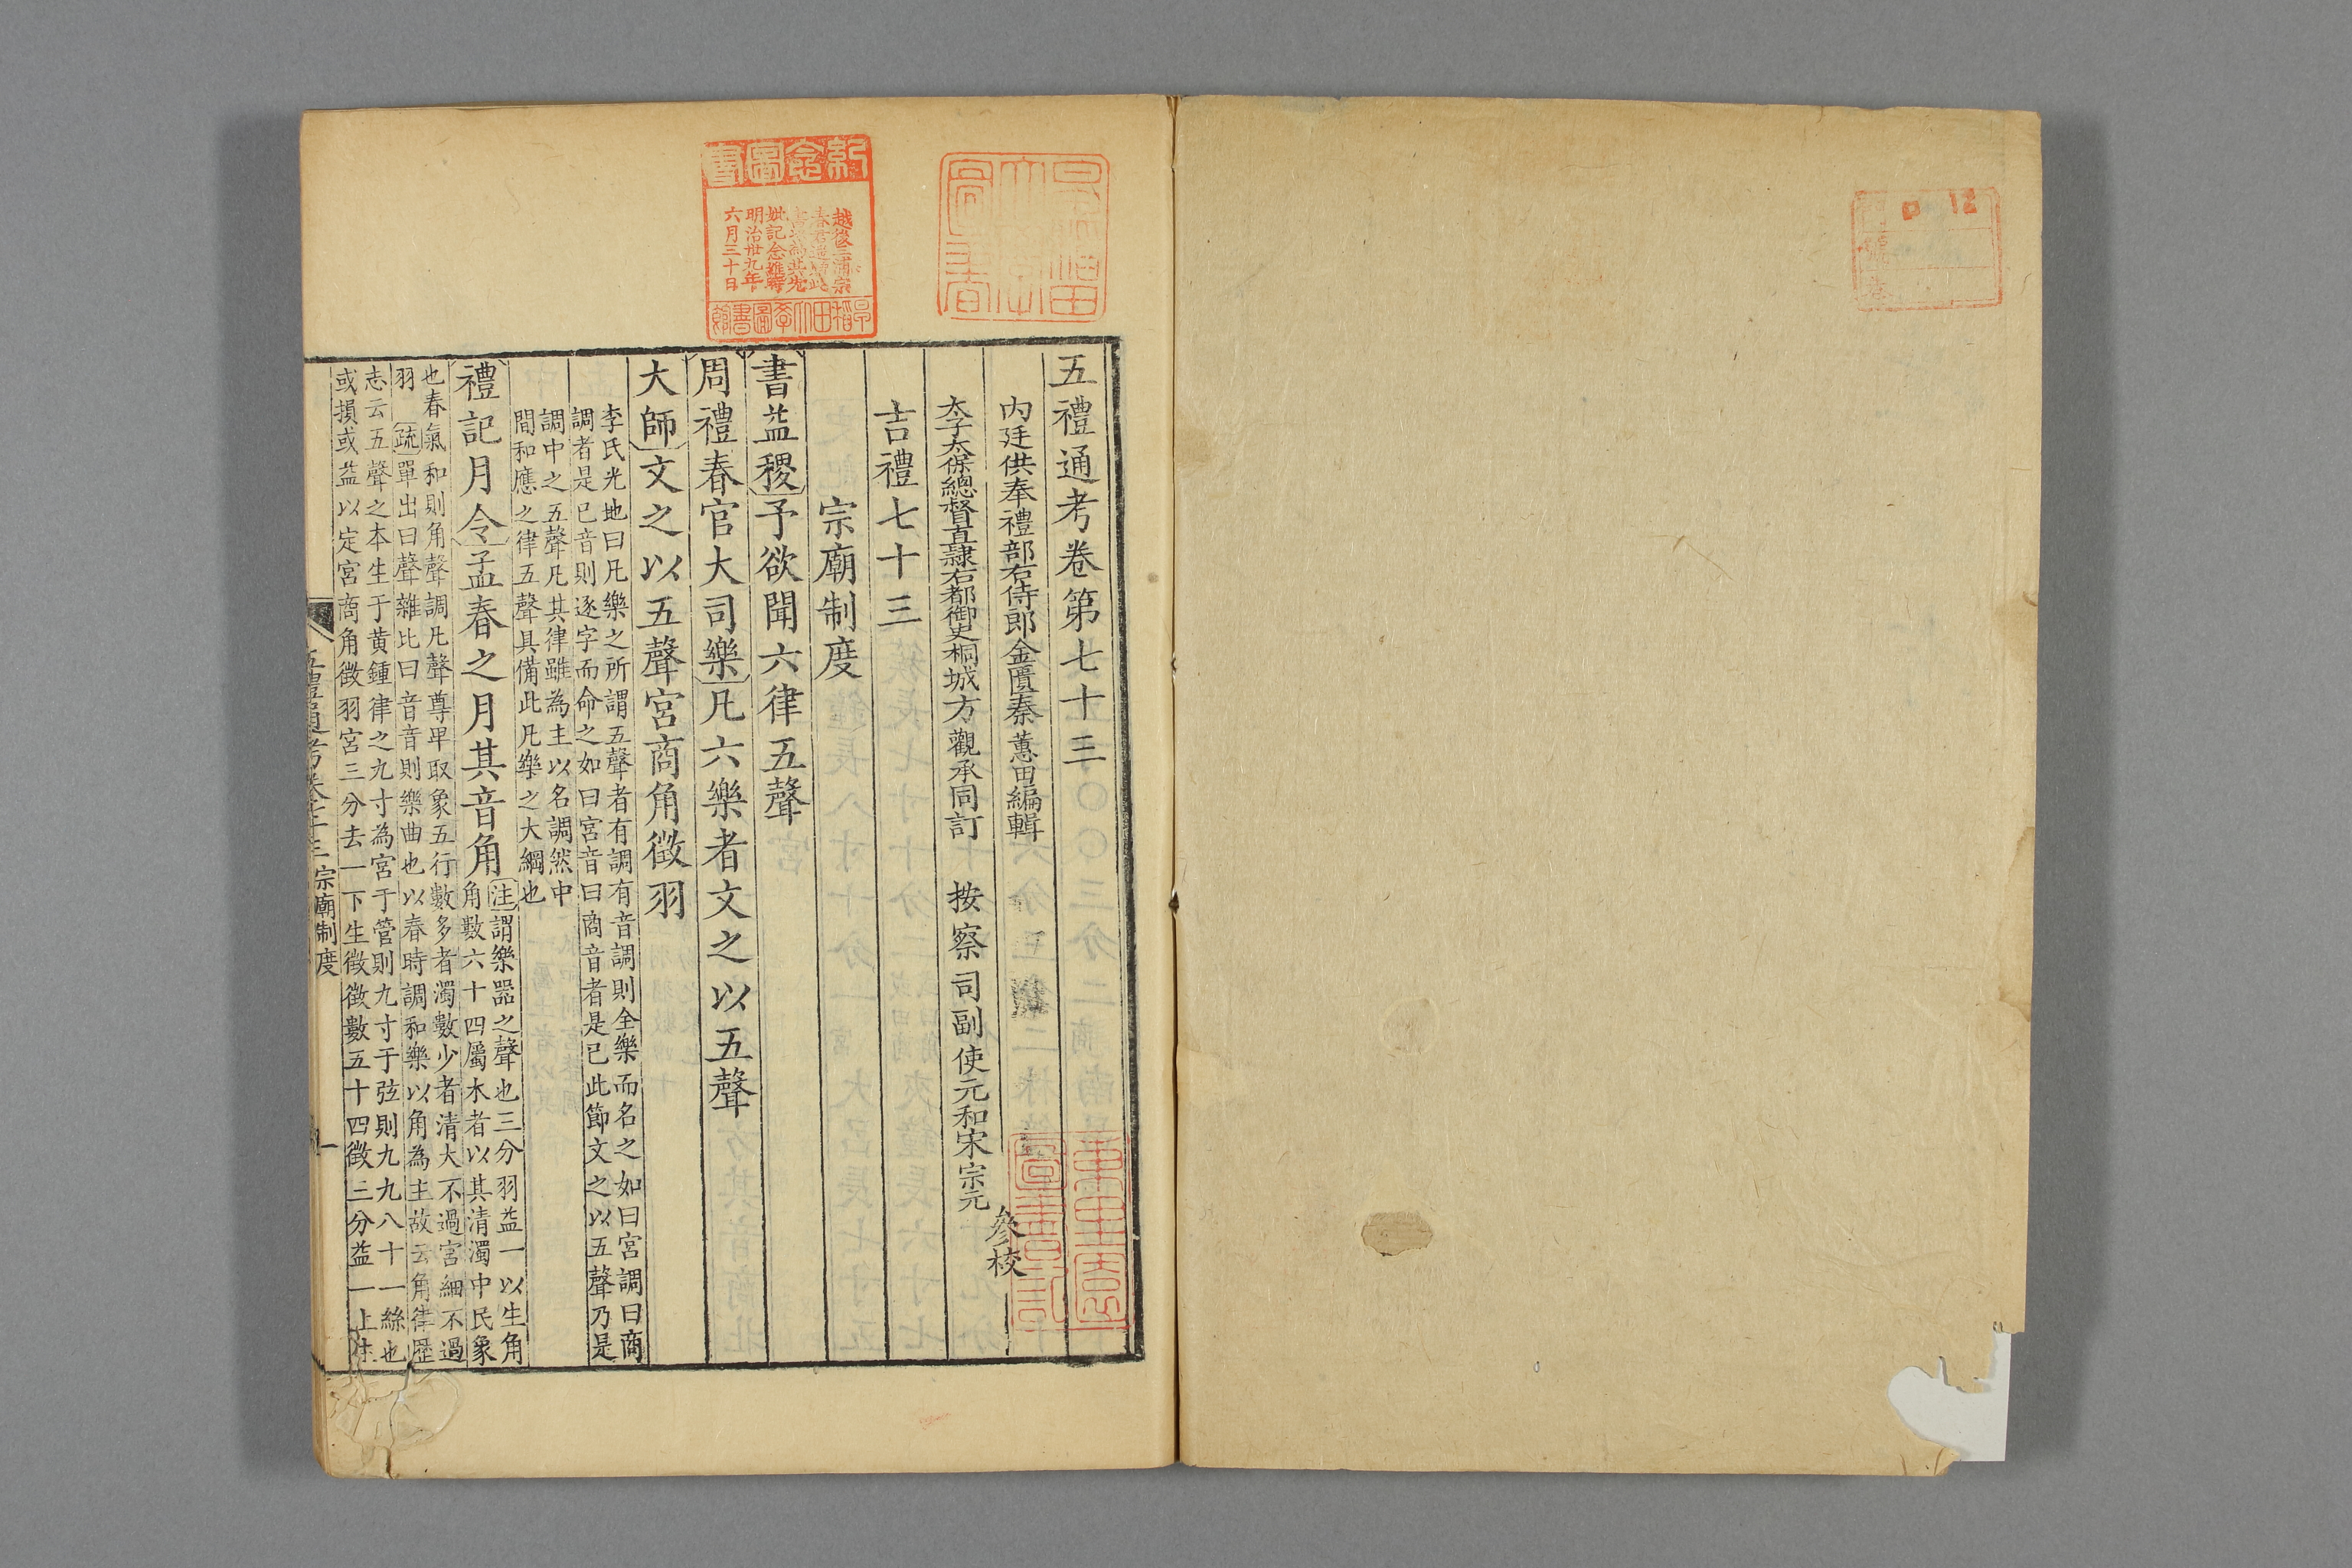 五禮通考卷第七十三
內廷供奉禮部右侍郎金匱秦蕙田編輯
太子太保總督直隸右都御史桐城方觀承同訂
按察司副使元和宋宗元
參校
吉禮七十三
宗廟制度
書益稷予欲聞六律五聲
周禮春官大司樂凡六樂者文之以五聲
大師文之以五聲宮商角徵羽
李氏光地曰凡樂之所謂五聲者有調有音調則全樂而名之如曰宮調曰商
調者是已音則逐字而命之如曰宮音曰商音者是已此節文之以五聲乃是
調中之五聲凡其律雖為主以名調然中
間和應之律五聲具備此凡樂之大綱也
禮記月令孟春之月其音角
注謂樂器之聲也三分羽益一以生角
角數六十四屬木者以其清濁中民象
也春氣和則角聲調凡聲尊卑取象五行數多者濁數少者清大不過宮細不過
羽疏單出曰聲雜比曰音音則樂曲也以春時調和樂以角為主故云角律歷
志云五聲之本生于黃鍾律之九寸為宮于管則九寸于弦則九九八十一絲也
或損或益以定宮商角徵羽宮三分去一下生徵徵數五十四徵三分益一上生
五禮通考卷七十三 宗廟制度
一
紀念圖書
越後三浦宗
明治卅九年
六月三十日
早稻田大學圖書館